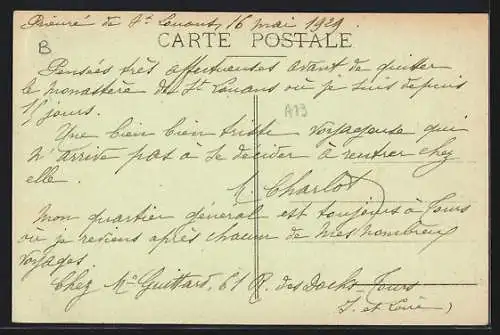 Prieuré de St. Louans, 16 mai 1929
B
CARTE POSTALE
Pensées très affectueuses avant de quitter
le monastère de St. Louans où je suis depuis
jours.
A73
Une bien bien triste voyageuse qui
n'arrive pas à se décider à rentrer chez
elle.
Charlot
Mon quartier général est toujours à Tours
où je reviens après chacun de mes nombreux
voyages.
Chez Me Guittard, 61 R. des Docks - Tours
I. et Loire)